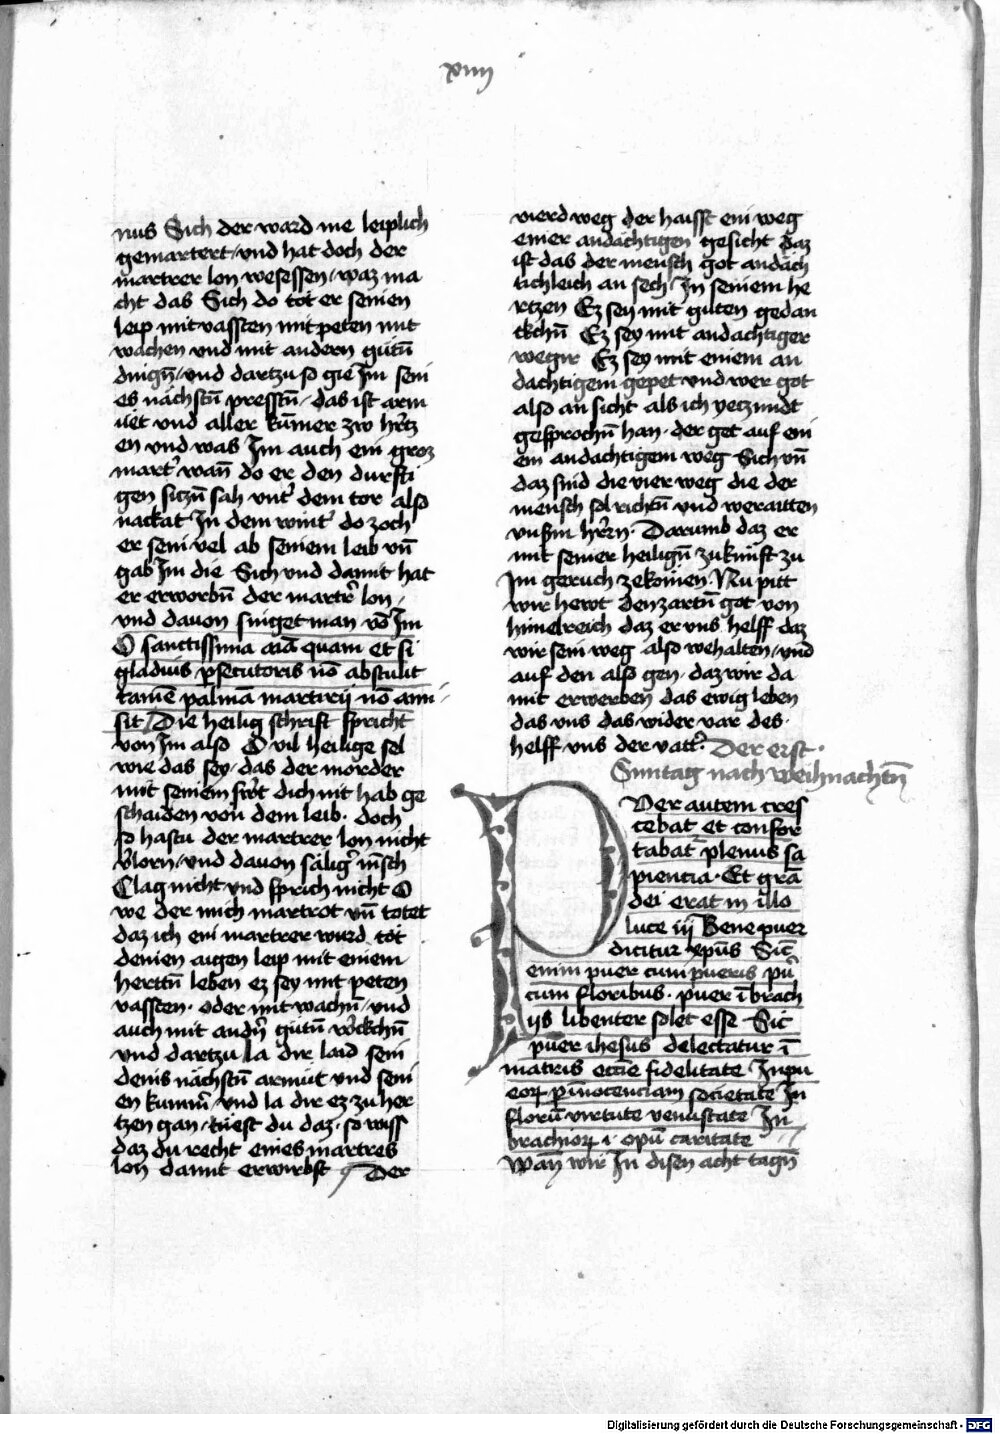 xiiij
nus Sich der ward nie leiplich
gemartert und hat doch der
martrer lon wesessen / waz ma
cht das Sich do tot er seinen
leip mit vassten mit peten mit
wachen und mit andern gutn̄
dingn̄ / und dartzu so gie Im sein
es nächstn̄ pressten̄ / das ist arm
uet und aller kūmer zw hr̄tz
en und was Im auch ein groz
mart̄ wan̄ do er den durfti
gen siczn̄ sah unt̄ dem tor also
nackat In dem wint̄ do zoch
er sein vel ab seinem leib un̄
gab Im die Sich und damit hat
er erworbn̄ der martr̄ lon /
und davon singet man vō Im
O sanctissima aīa quam et si
gladius psecutoris nō abstulit
tamē palmā martirij nō ami
sit / Die heilig schrift spricht
von Im also O vil heilige sel
wie das sey das der morder
mit seinem swt̄ dich nit hab ge
schaiden von dem leib · doch
so hastu der martrer lon nicht
v̄lorn / und davon säliḡ m̄sch
Clag nicht und sprich nicht O
we der mich martrot un̄ totet
daz ich ein martrer wurd tot
deinen aigen leip mit einem
herttn̄ leben ez sey mit peten
vassten · oder mit wachn̄ / und
auch mit andn̄ gutn̄ w̄ckchn̄
und dartzu la dir laid sein
deins nächstn̄ armut und sein
en kumm̄ / und la dir ez zu her
tzen gan / tuest du daz / so wiss
daz du recht eines martres
lon damit erwirbst Der
vierd weg der haisst ein weg
einer andächtigen gesicht daz
ist das der mensch got andäch
tichleich an sech / In seinem he
rtzen Ez sey mit guten gedan
ckchn̄ Ez sey mit andachtiger
wegir Ez sey mit einem an
dachtigem gepet und wer got
also an sicht als ich yeczundt
gesprochn̄ han · der get auf ein
em andachtigem weg Sich un̄
daz sind die vier weg die der
mensch sol richtn̄ und weraitten
unsm̄ hr̄rn · Darumb daz er
mit seiner heilign̄ zukunft zu
Im geruch zekomen · Nu pitt
wir hewt den zartn̄ got von
himelreich daz er uns helff daz
wir sein weg also wehalten / und
auf den also gen · daz wir da
mit erwerben das ewig leben
das uns das wider var des ·
helff uns der vatt̄ · Der erst ·
Suntag nach weihnachtn̄
Puer autem cres
cebat et confor
tabat plenus sa
piencia · Et grā
dei erat in illo
luce ij Bene puer
dicitur xpūs Sic̄
enim puer cum pueris pu̅
cum floribus · puer ī brach
ijs libenter solet esse Sic
puer ihesus delectatur ī
matris eccīe fidelitate In pu
eorꝝ p īnocenciam societate In
florū virtute venustate In
brachiorꝝ i · opū caritate
Wan̄ wir In disen acht tagn̄
Digitalisierung gefördert durch die Deutsche Forschungsgemeinschaft - DFG